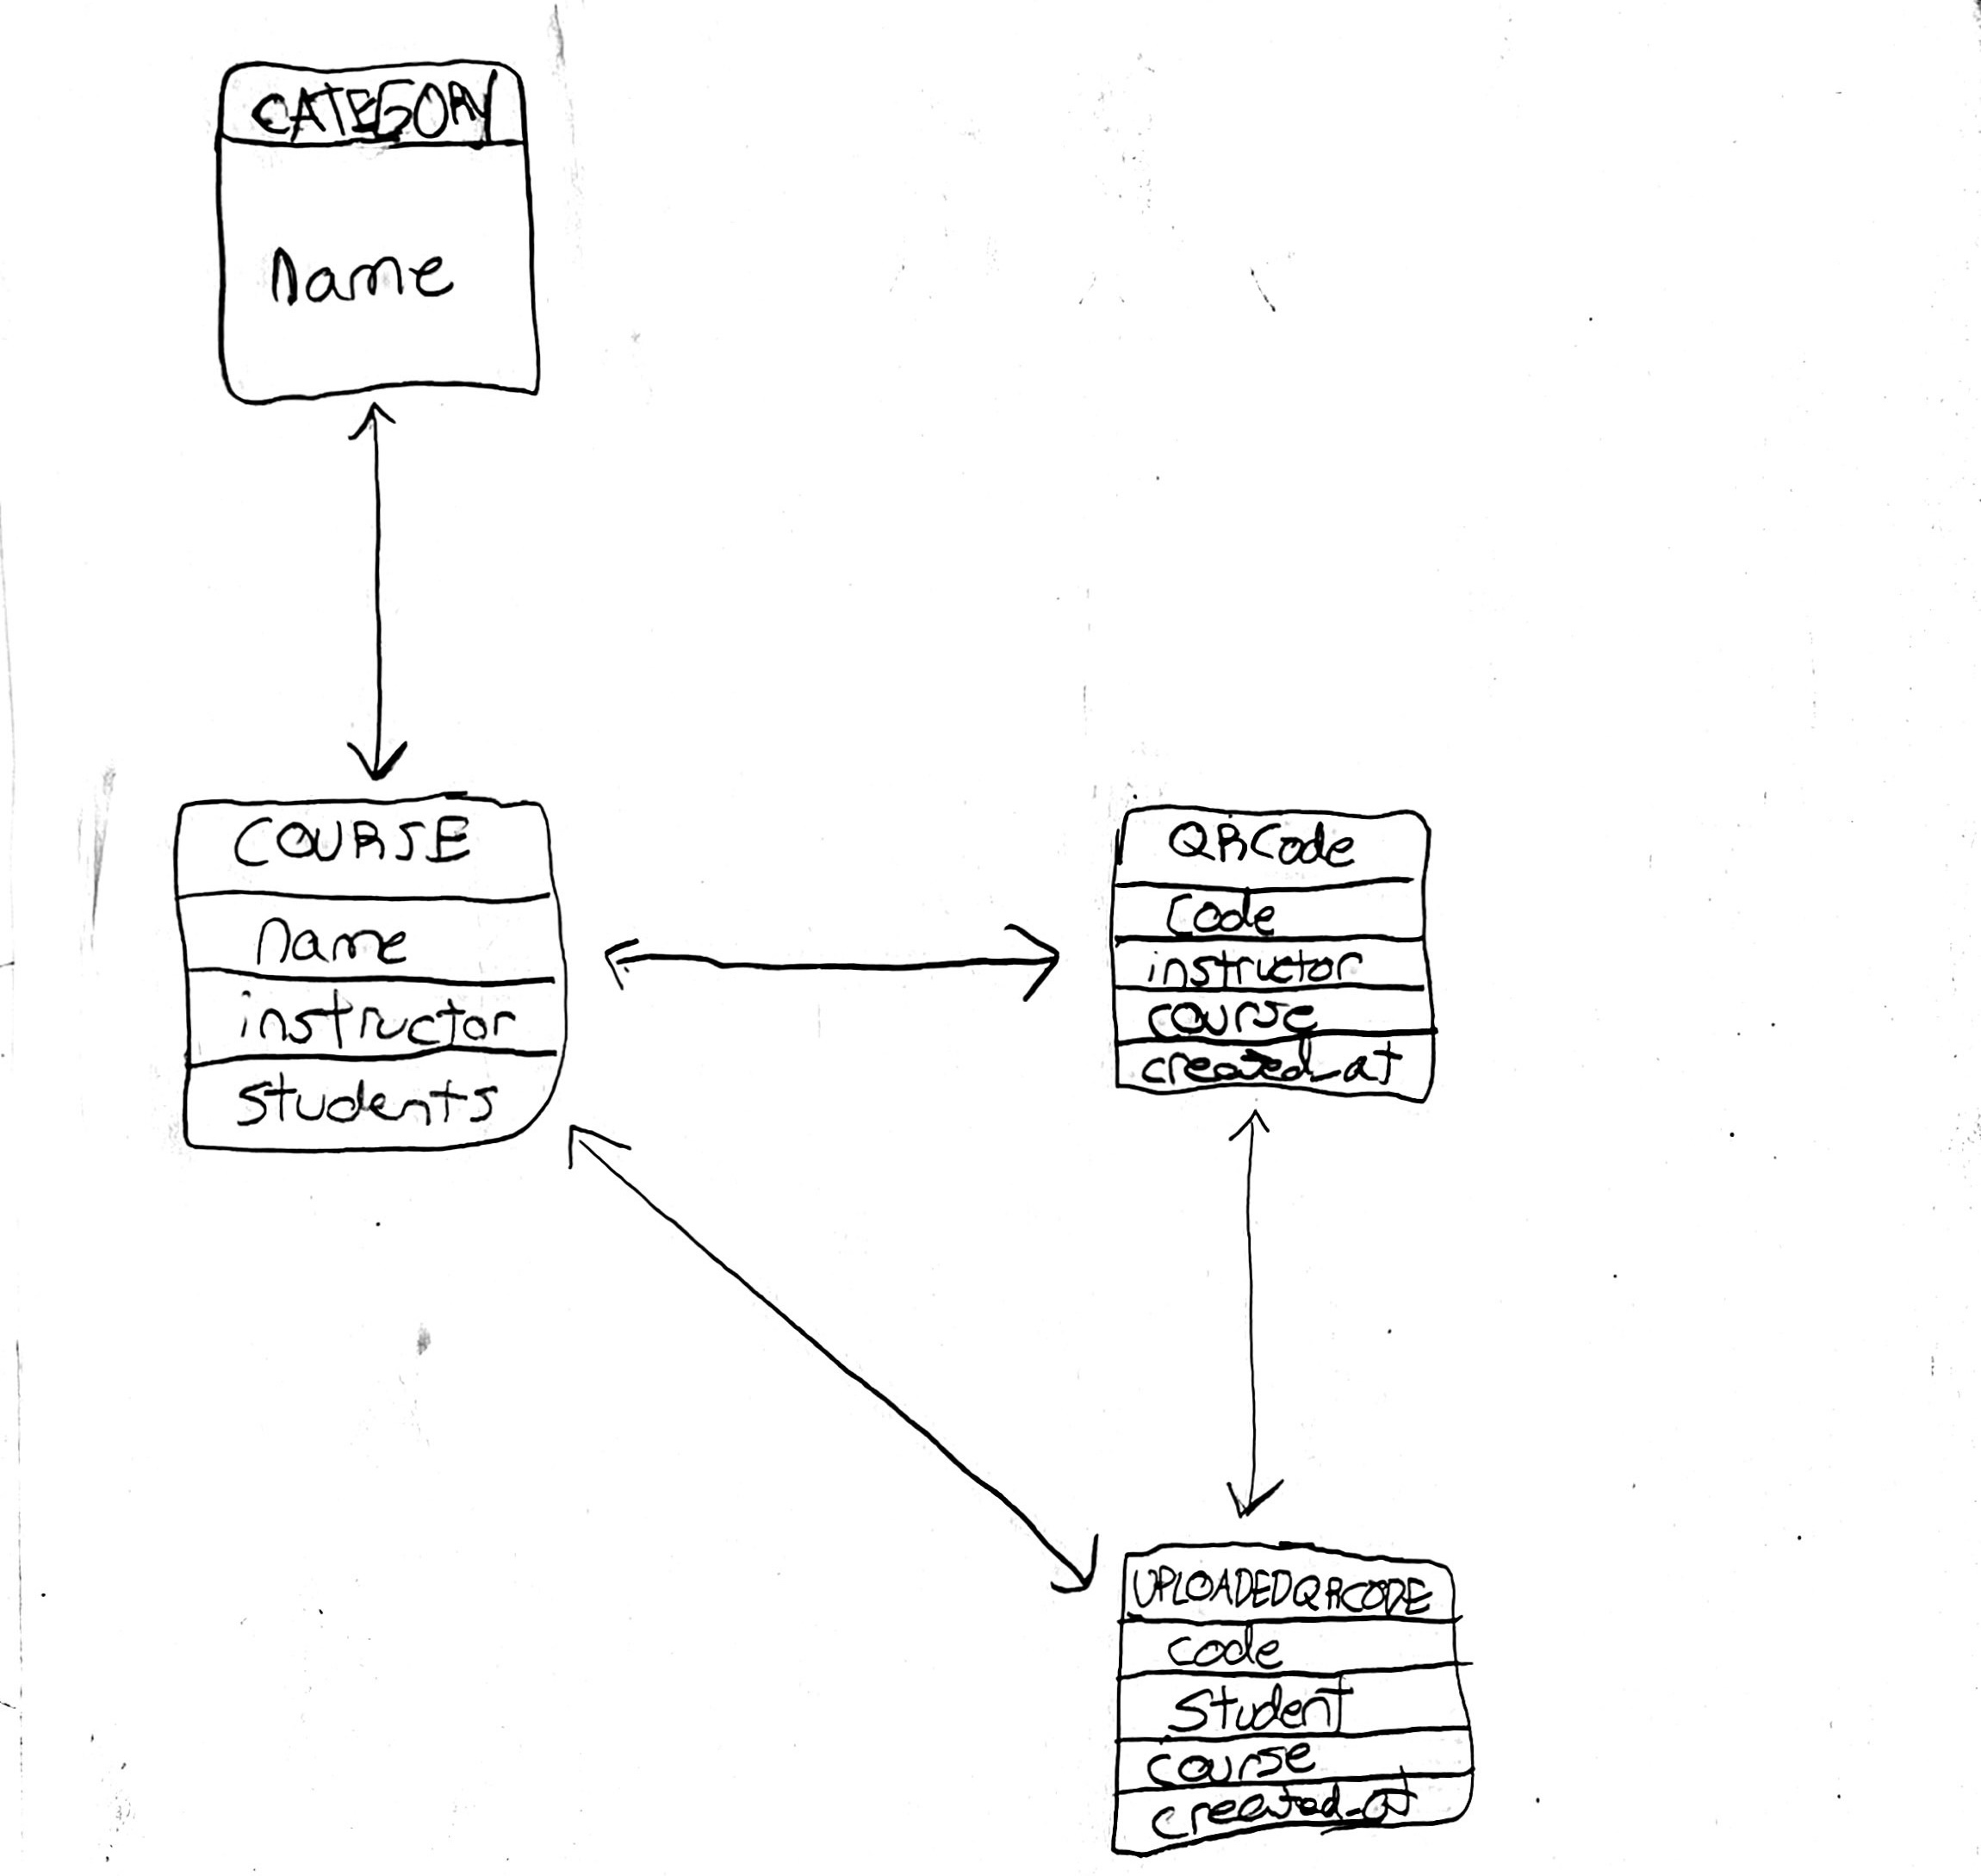 CATEGORY
name
COURSE
name
instructor
students
QRCode
code
instructor
course
created_at
UPLOADEDQRCODE
code
student
course
created_at